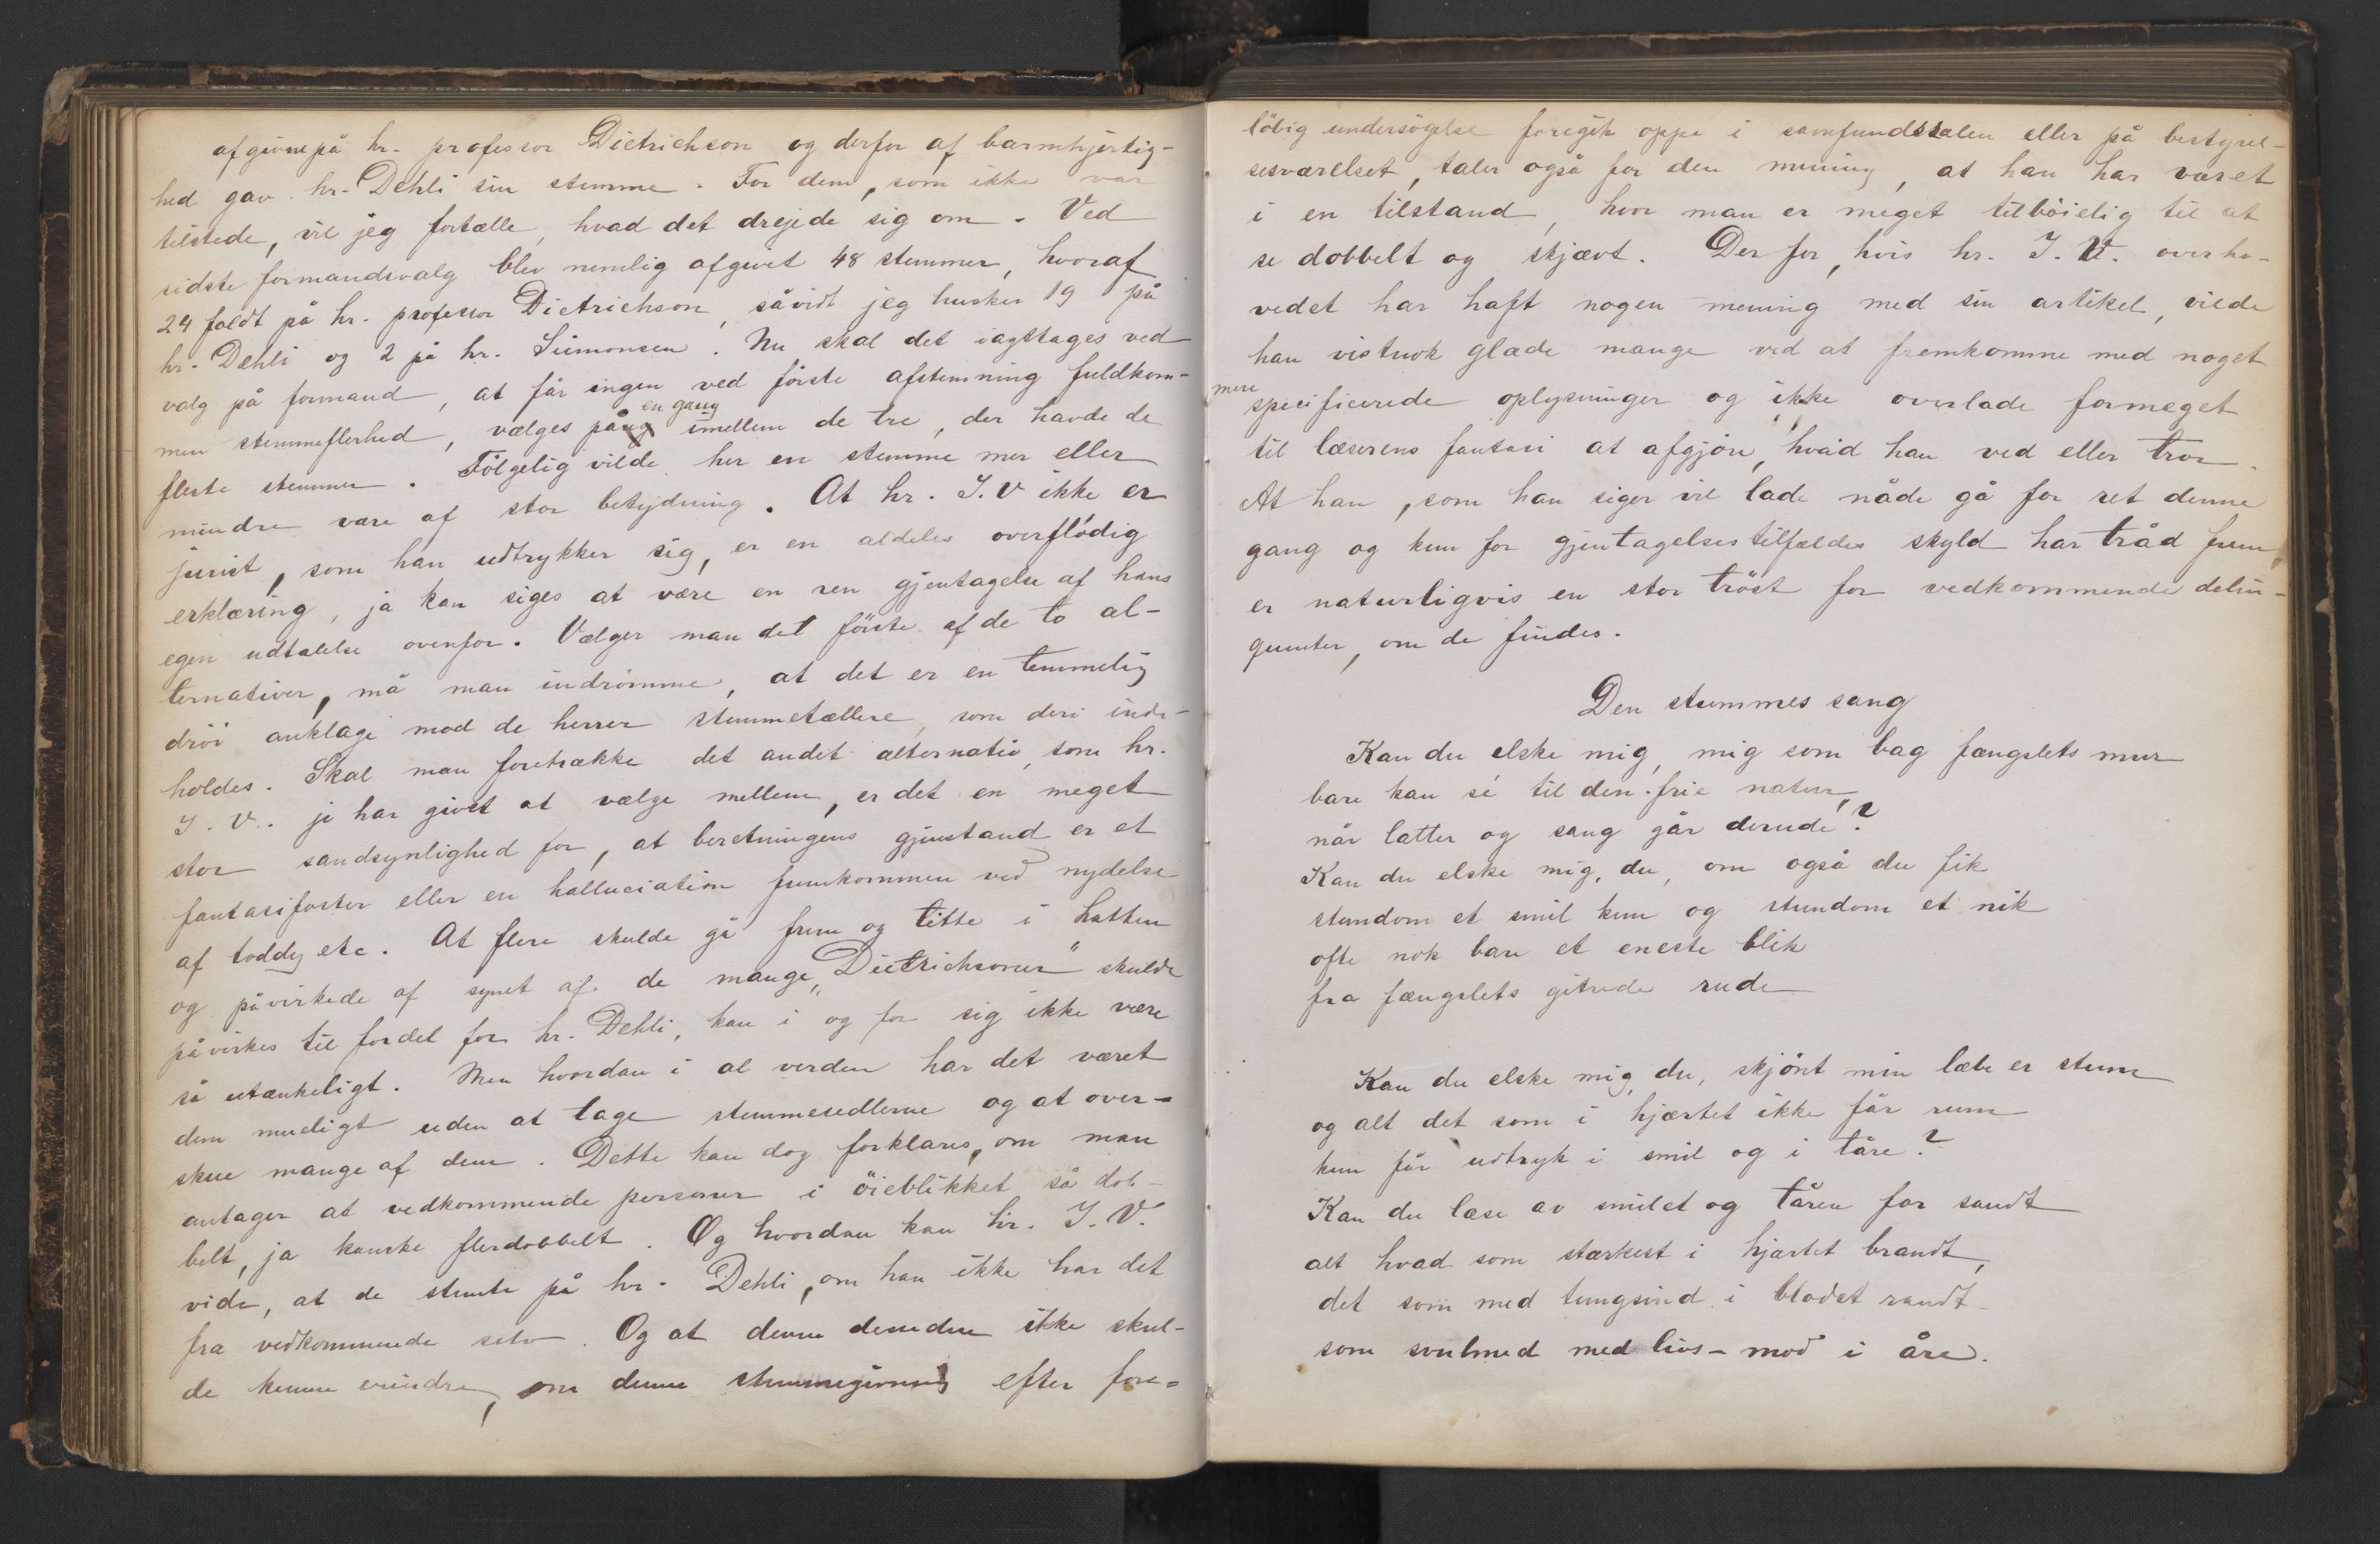 afgivne på hr. professor Dietrichson og derfor af barmhjertig-
hed gav hr. Dehli sin stemme. For dem, som ikke var
tilstede, vil jeg fortælle, hvad det drejede sig om. Ved
sidste formandsvalg blev nemlig afgivet 48 stemmer, hvoraf
24 faldt på hr. professor Dietrichson, såvidt jeg husker 19 på
hr. Dehli og 2 på hr. Siimonsen. Nu skal det iagttages ved
valg på formand, at får ingen ved förste afstemning fuldkom-
men stemmeflerhed, vælges på en gang imellem de tre, der havde de
fleste stemmer. Fölgelig vilde her en stemme mer eller
mindre være af stor betydning. At hr. J. V ikke er
jurist, som han udtrykker sig, er en aldeles overflödig
erklæring, ja kan siges at være en ren gjentagelse af hans
egen udtalelse ovenfor. Vælger man det förste af de to al-
ternativer, må man indrömme, at det er en temmelig
dröi anklage mod de herrer stemmetællere, som deri inde-
holdes. Skal man foretrække det andet alternativ, som hr.
J. V. jo har givet at vælge mellem, er det en meget
stor sandsynlighed for, at beretningens gjenstand er et
fantasifoster eller en halluciation fremkommen ved nydelse
af toddy etc. At flere skulde gå frem og titte i hatten
og påvirkede af synet af de mange „Dietrichsoner" skulde
påvirkes til fordel for hr. Dehli, kan i og for sig ikke være
så utænkeligt. Men hvordan i al verden har det været
dem muligt uden at tage stemmesedlerne og at over-
skue mange af dem. Dette kan dog forklares, om man
antager at vedkommende personer i öieblikket så dob-
belt, ja kanske flerdobbelt. Og hvordan kan hr. J. V.
vide, at de stemte på hr. Dehli, om han ikke har det
fra vedkommende selv. Og at denne desuden ikke skul-
de kunne erindre, om denne stemmegivning efter fore-
löbig undersögelse foregik oppe i samfundssalen eller på bestyrel-
sesværelset, taler også for den mening, at han har været
i en tilstand, hvor man er meget tilböielig til at
se dobbelt og skjævt. Derfor, hvis hr. J. V. overho-
vedet har haft nogen mening med sin artikel, vilde
han vistnok glæde mange ved at fremkomme med noget
mere specificerede oplysninger og ikke overlade formeget
til læserens fantasi at afgjöre, hvad han ved eller tror.
At han, som han siger vil lade nåde gå for ret denne
gang og kun for gjentagelsestilfældes skyld har tråd frem,
er naturligvis en stor tröst for vedkommende delin-
quenter, om de findes.
Den stummes sang
Kan du elske mig, mig som bag fængslets mur
bare kan sé til den frie natur,
når latter og sang går derude?
Kan du elske mig, du, om også du fik
stundom et smil kun og stundom et nik
ofte nok bare et eneste blik
fra fængslets gitrede rude
Kan du elske mig, du, skjönt min læbe er stum
og alt det som i hjærtet ikke får rum
kun får udtryk i smil og i tåre?
Kan du læse av smilet og tåren for sandt
alt hvad som stærkest i hjærtet brandt,
det som med tungsind i blodet randt
som svulmed med livs-mod i åre.